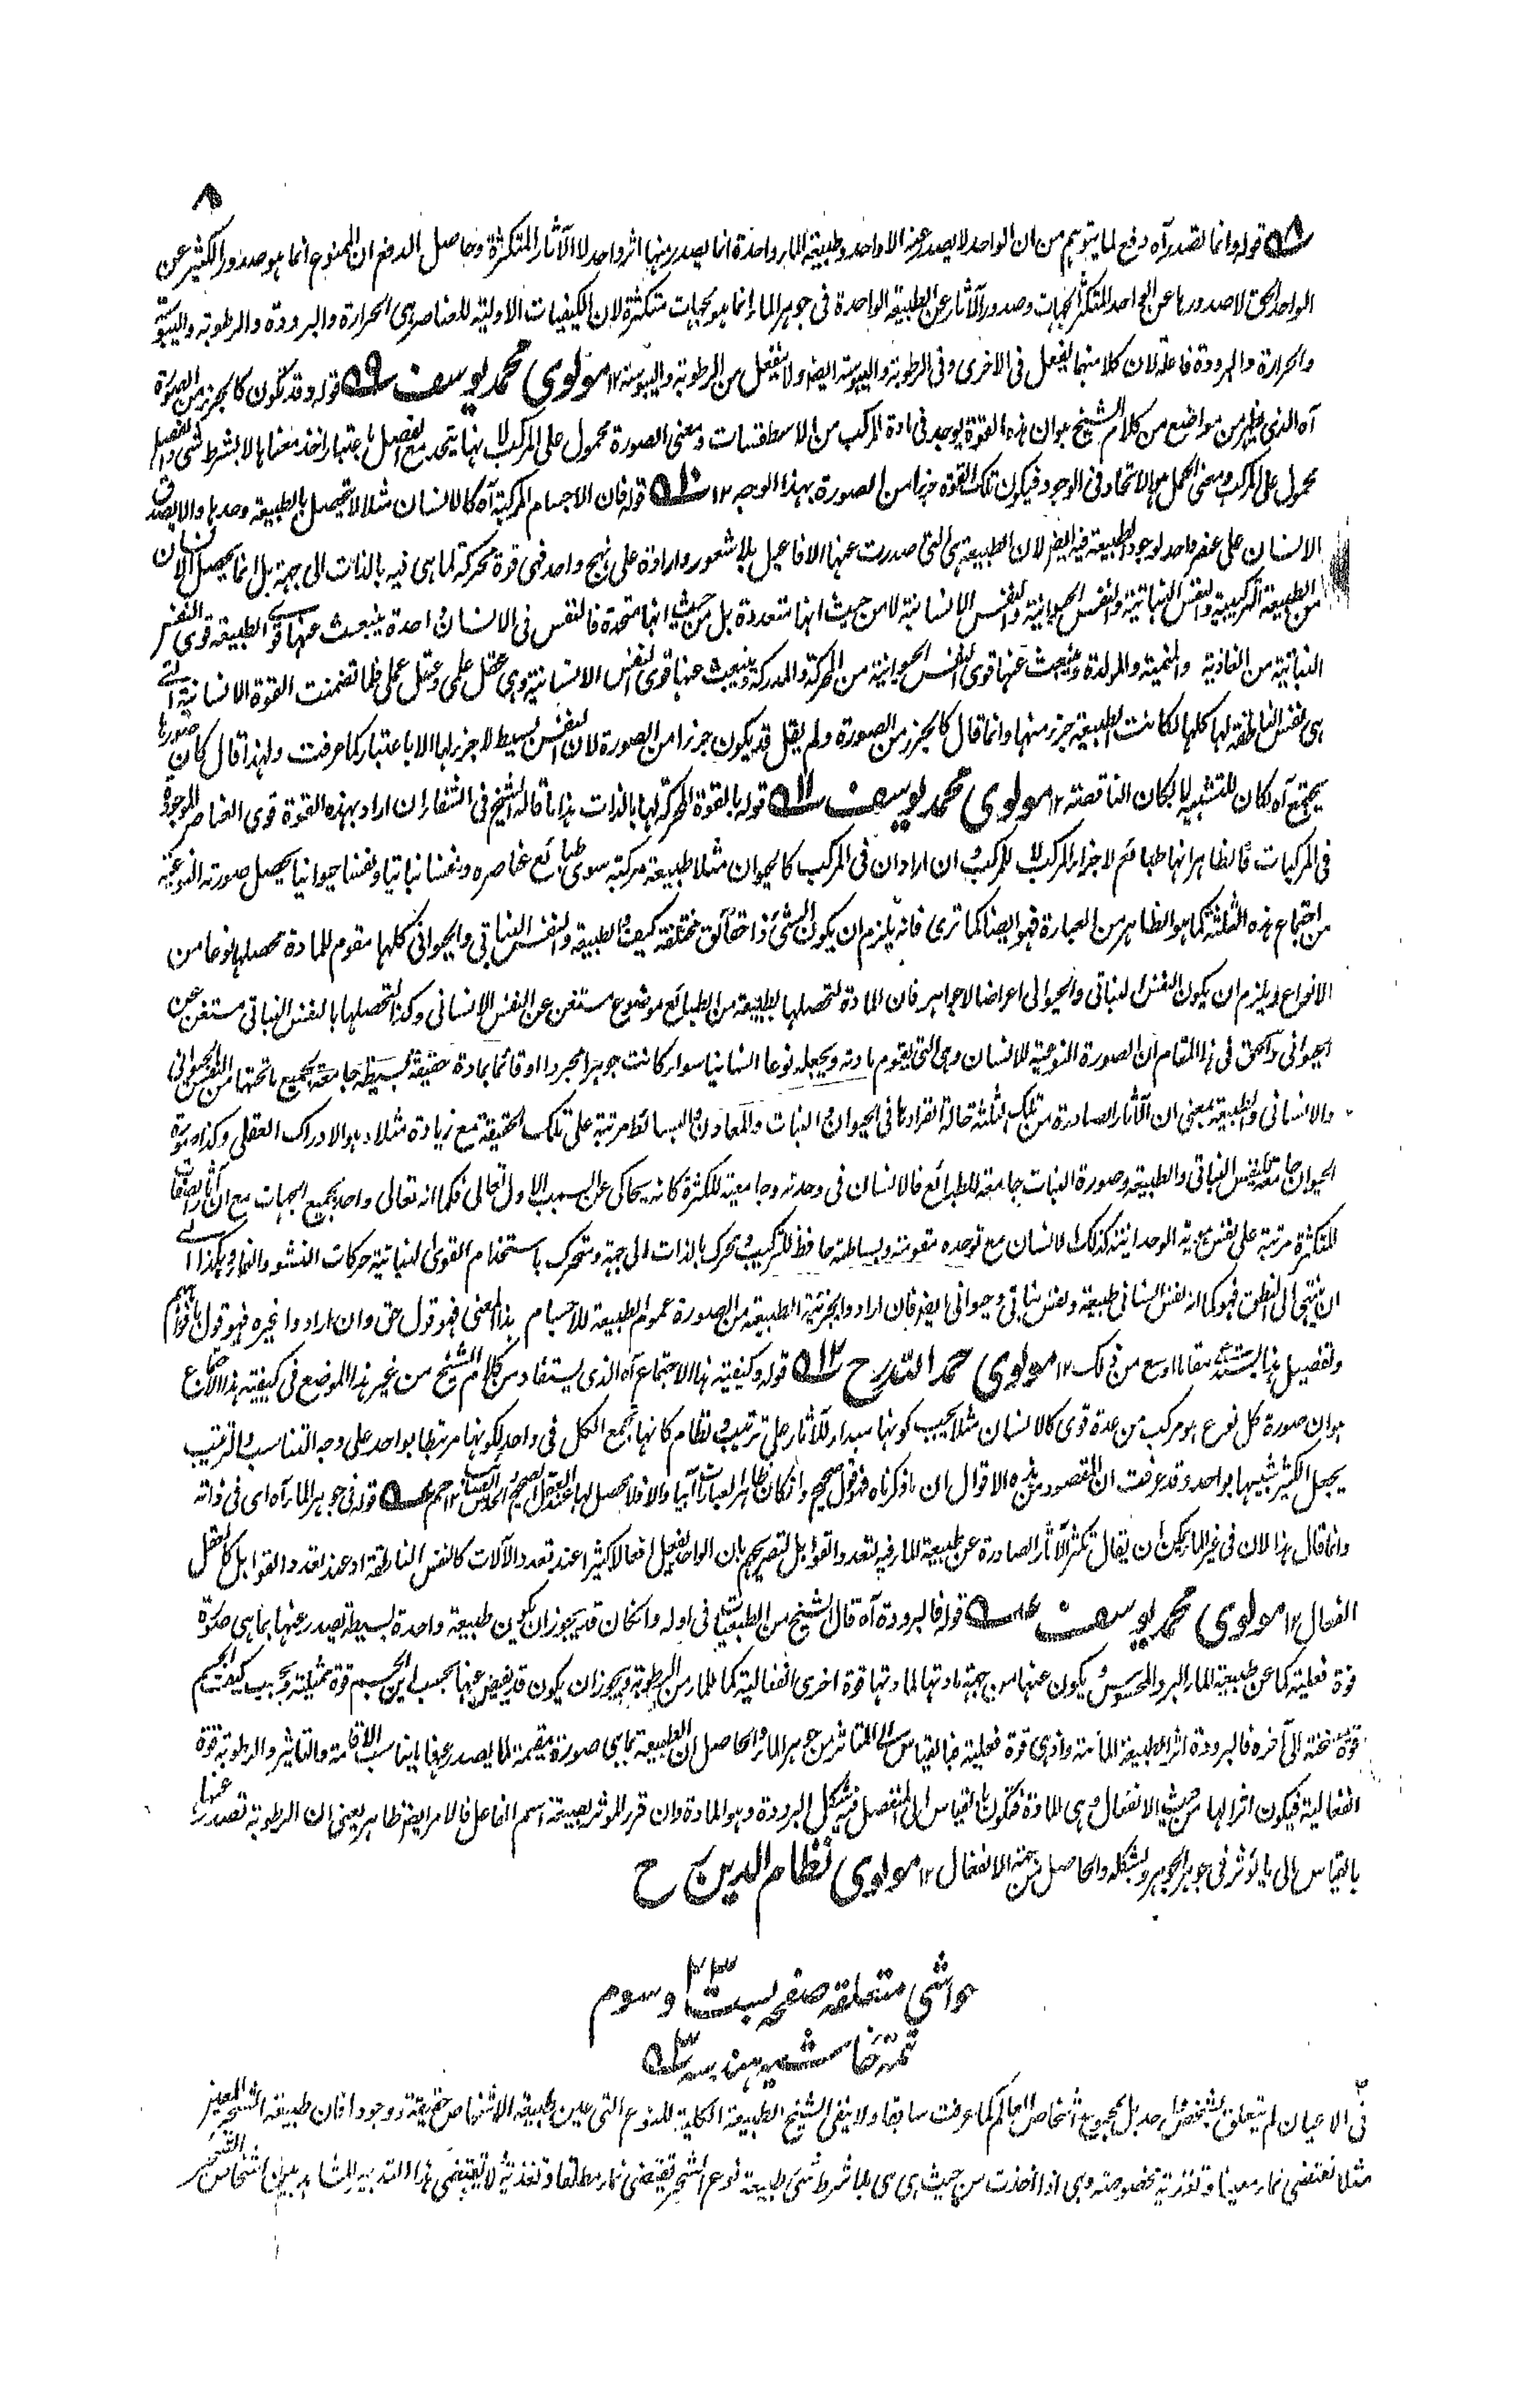 ٨
٥٨ قوله وانما تصدر آه دفع لما يتوهم من ان الواحد لا يصدر عنه الا واحد وطبيعة الماء واحدة انما يصدر منها اثر واحد لا الآثار المتكثرة وحاصل الدفع ان الممنوع انما هو صدور الكثير عن
الواحد الحق لا صدورها عن الواحد المتكثر الجهات وصدور الآثار عن الطبيعة الواحدة فى جوهر الماء انما هو بجهات متكثرة لان الكيفيات الاولية للعناصر هى الحرارة والبرودة والرطوبة واليبوسة
والحرارة والبرودة فاعلة لان كلا منهما يفعل فى الاخرى وفى الرطوبة واليبوسة ايضا ولا ينفعل من الرطوبة واليبوسة ١٢ مولوى محمد يوسف ٥٩ قوله وقد تكون كالجزء من الصورة
آه الذى يظهر من مواضع من كلام الشيخ هو ان هذه القوة يوجد فى مادة المركب من الاسطقسات ومعنى الصورة محمول على المركب لانها يتحد مع الفصل باعتبار اخذ معناها لا بشرط شئ والفصل
محمول على المركب ومعنى الحمل هو الاتحاد فى الوجود فيكون تلك القوة جزءا من الصورة بهذا الوجه ١٢ ٥١٠ قوله فان الاجسام المركبة آه كالانسان مثلا لا يتحصل بالطبيعة وحدها والا يصدق
الانسان على عنصر واحد لوجود الطبيعة فيه ايضا لان الطبيعة هى التى صدرت عنها الافاعيل بلا شعور وارادة على نهج واحد فهى قوة محركة لما هى فيه بالذات الى جهة بل انما يحصل الانسان
من الطبيعة التركيبية والنفس النباتية والنفس الحيوانية والنفس الانسانية لا من حيث انها متعددة بل من حيث انها متحدة فالنفس فى الانسان واحدة ينبعث عنها قوى الطبيعة وقوى النفس
النباتية من الغاذية والمنمية والمولدة وينبعث عنها قوى النفس الحيوانية من المحركة والمدركة وينبعث عنها قوى النفس الانسانية وهى عقل علمى وعقل عملى فلما تضمنت القوة الانسانية التى
هى نفس الناطقة لها كلها لكانت الطبيعة جزء منها وانما قال كالجزء من الصورة ولم يقل قد يكون جزءا من الصورة لان النفس بسيط لا جزء لها الا باعتبار كما عرفت ولهذا قال كان صورها
يجتمع آه لكان للتشبيه لا لكان الناقصة ١٢ مولوى محمد يوسف ٥١١ قوله بالقوة المحركة لها بالذات هذا ما قاله الشيخ فى الشفاء ان اراد بهذه القوة قوى العناصر الموجودة
فى المركبات فالظاهر انها طبائع لاجزاء المركب لا للمركب وان اراد ان فى المركب كالحيوان مثلا طبيعة مركبة سوى طبائع عناصره ونفسا نباتيا ونفسا حيوانيا يحصل صورته النوعية
من اجتماع هذه الثلثة كما هو الظاهر من العبارة فهو ايضا كما ترى فانه يلزم ان يكون الشئ ذا حقائق مختلفة كيف والطبيعة والنفس النباتى والحيوانى كلها مقوم للمادة محصلها نوعا من
الانواع ويلزم ان يكون النفس النباتى والحيوانى اعراضا لا جواهر فان المادة لتحصلها بطبيعة من الطبائع موضوع مستغن عن النفس الانسانى وكذا لتحصلها بالنفس النباتى مستغن عن
الحيوانى والحق فى هذا المقام ان الصورة النوعية للانسان وهى التى يقوم مادته ويجعله نوعا انسانيا سواء كانت جوهرا مجردا او قائما بمادة حقيقة بسيطة جامعة لجميع ما تحتها من النفس الحيوانى
والانسانى والطبيعة بمعنى ان الآثار الصادرة من تلك الثلثة حالة انفرادها فى الحيوان والنبات والمعادن والبسائط مرتبة على تلك الحقيقة مع زيادة مثلا وهو الادراك العقلى وكذا صورة
الحيوان جامعة للنفس النباتى والطبيعة وصورة النبات جامعة للطبائع فالانسان فى وحدته وجامعيته للكثرة كانه يحاكى عن السبب الاول تعالى فكما انه تعالى واحد بجميع الجهات مع ان آثار الصفات
المتكثرة مرتبة على نفس هويته الوحدانية كذلك الانسان مع توحده مقومته وبساطته حافظ للتركيب ومحرك بالذات الى جهة ومتحرك باستخدام القوى النباتية حركات النشو والنماء وهكذا الى
ان ينتهى الى النطق فهو كما انه نفس انسانى طبيعة ونفس نباتى وحيوانى ايضا فان ارادوا بجزئية الطبيعة من الصورة عموم الطبيعة للاجسام بهذا المعنى فهو قول حق وان ارادوا غيره فهو قول بافواههم
وتفصيل هذا يستدعى مقاما اوسع من ذلك ١٢ مولوى حمد الله رح ٥١٢ قوله وكيفية هذا الاجتماع آه الذى يستفاد من كلام الشيخ من غير هذا الموضع فى كيفية هذا الاجتماع
هو ان صورة كل نوع هو مركب من عدة قوى كالانسان مثلا يجب كونها مبدأ للآثار على ترتيب ونظام كانها يجمع الكل فى واحد لكونها مرتبطا بواحد على وجه التناسب والترتيب
يجعل الكثير شبيها بواحد وقد عرفت ان المقصود من هذه الاقوال ان ما ذكرناه فهو قول صحيح وان كان ظاهر العبارات آبيا والا فلا يحصل لها عند العقل الصحيح ١٢ ح م ٥ قوله فى جوهر الماء آه اى فى ذاته
وانما قال هذا لان فى غير الماء يمكن ان يقال تكثر الآثار الصادرة عن طبيعة الماء فيه لتعدد القوابل لتصريحهم بان الواحد يفعل افعالا كثيرا عند تعدد الآلات كالنفس الناطقة او عند تعدد القوابل كالعقل
الفعال ١٢ مولوى محمد يوسف ٥ قوله فالبرودة آه قال الشيخ من الطبعيات فى اوله وان كان قد يجوز ان يكون طبيعة واحدة بسيطة تصدر عنها بما هى صورة
قوة فعلية كما عن طبيعة الماء البرد المحسوس ويكون عنها من جهة مادتها لمادتها قوة اخرى انفعالية كما للماء من الرطوبة ويجوز ان يكون قد يفيض عنها بحسب اين الجسم قوة وبحسب كيف الجسم
قوة الى آخره فالبرودة اثر الطبيعة المائية واذ هى قوة فعلية فبالقياس الى المتاثر من جوهر الماء والحاصل ان الطبيعة بما هى صورة مقيمة لما يصدر عنها ما يناسب الاقامة والتاثير والرطوبة قوة
انفعالية فيكون اثرا لها من حيث الانفعال وهى المادة فتكون بالقياس الى المنفصل فيه شكل البرودة وهو المادة وان قرر الموثر بصيغة اسم الفاعل فالامر ايضا ظاهر يعنى ان الرطوبة تصدر عنها
بالقياس الى ما يؤثر فى جوهر الجوهر ويشكله والحاصل من جهة الانفعال ١٢ مولوى نظام الدين رح
حواشى متعلقه صفحه بست ٢٣ وسوم
تتمة حاشيه هندسه ٥٣
فى الاعيان لم يتعلق بشخص واحد بل بمجموع اشخاص العالم كما عرفت سابقا ولا ينفى الشيخ الطبيعة الكلية للنوع التى عين طبيعة الاشخاص حقيقة ووجودا فان طبيعة الشجر المعين
مثلا تقتضى نماء معينا وتغذية مخصوصة وهى اذا اخذت من حيث هى هى بلا شرط شئ طبيعة نوع الشجر تقتضى نماء مطلقا وتغذية لا تقتضى هذا التدبير المشاهد بين اشخاص الشجر